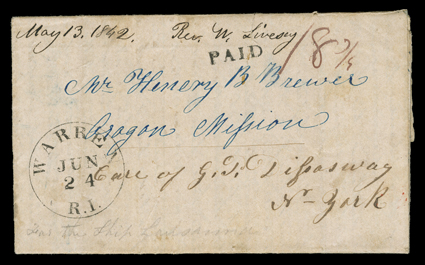 May 13, 1842. Rev. W. Livesey
PAID
18 3/4
Mr Henery B Brewer
Oragon Mission
Care of G. P. Disosway
Nw York
WARREN
JUN
24
R.I.
for the Ship